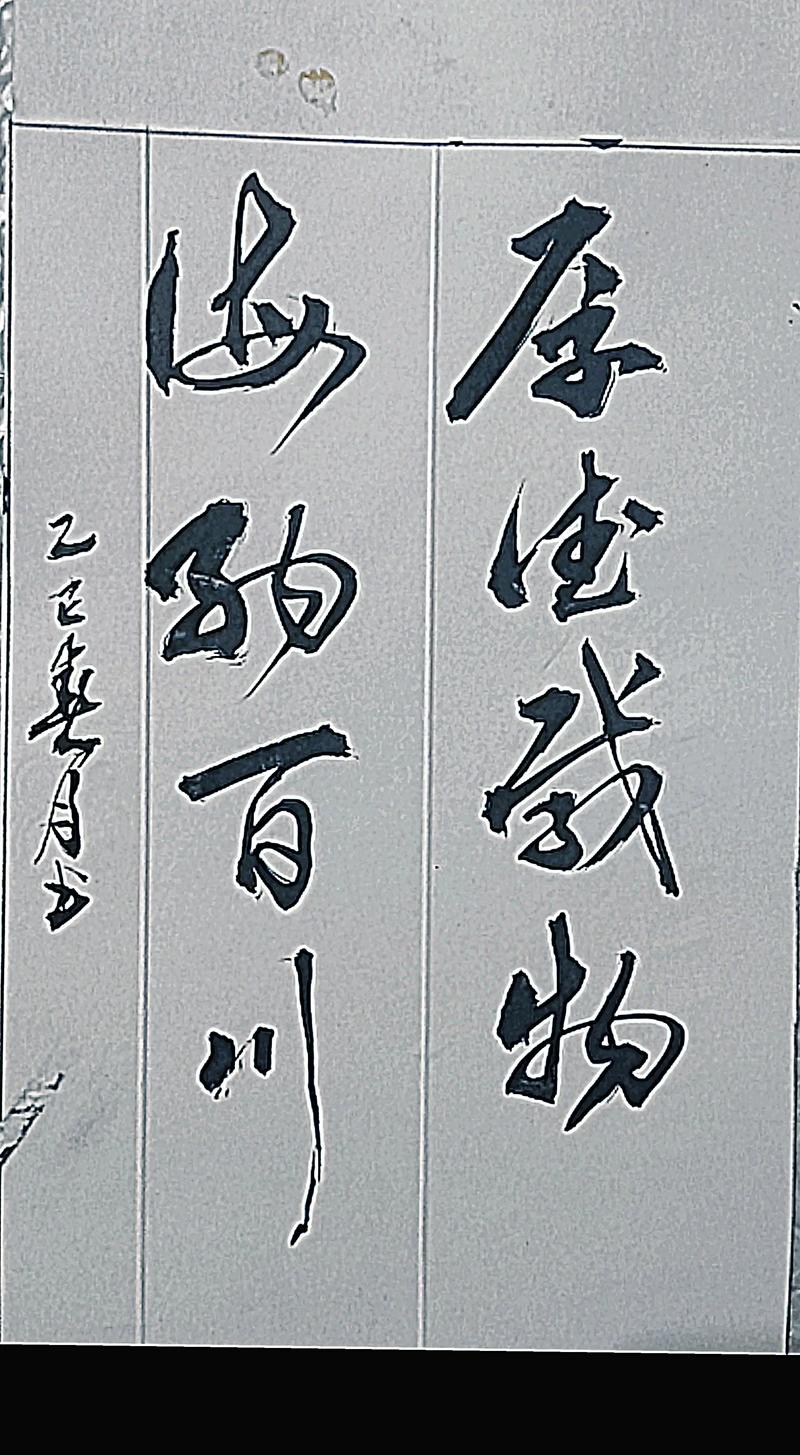 厚德载物
海纳百川
乙巳春月书